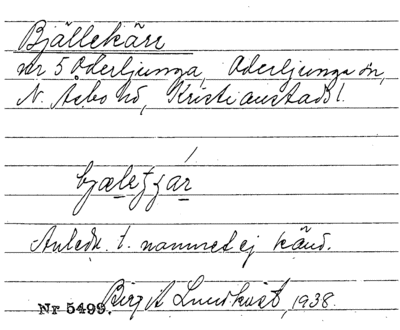 Bjällekärr
nr 5 Oderljunga, Oderljunga sn,
N. Åsbo hd, Kristianstads l.
Anledn. t. namnet ej känd.
Nr 5499. Birgit Lundkvist, 1938.